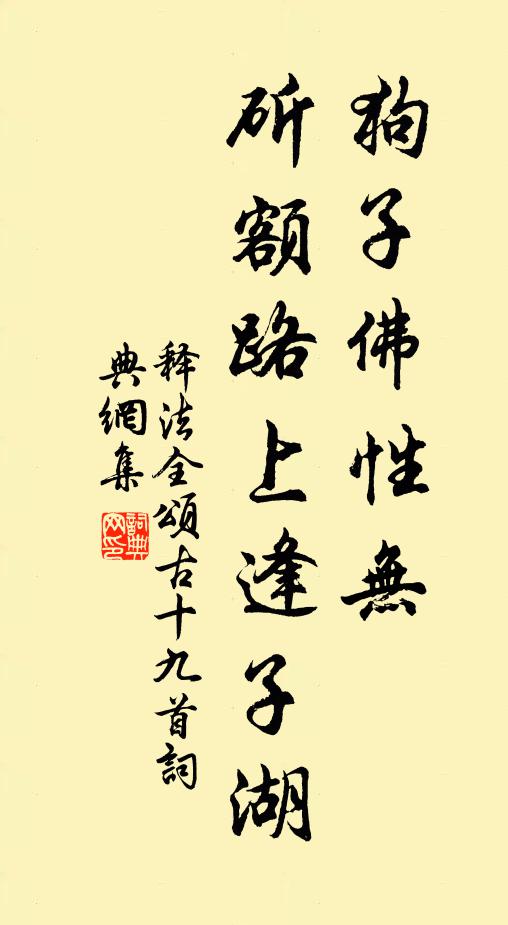 狗子佛性無
斫額路上逢子湖
释法全頌古十九首詞
典網集
詞典網印